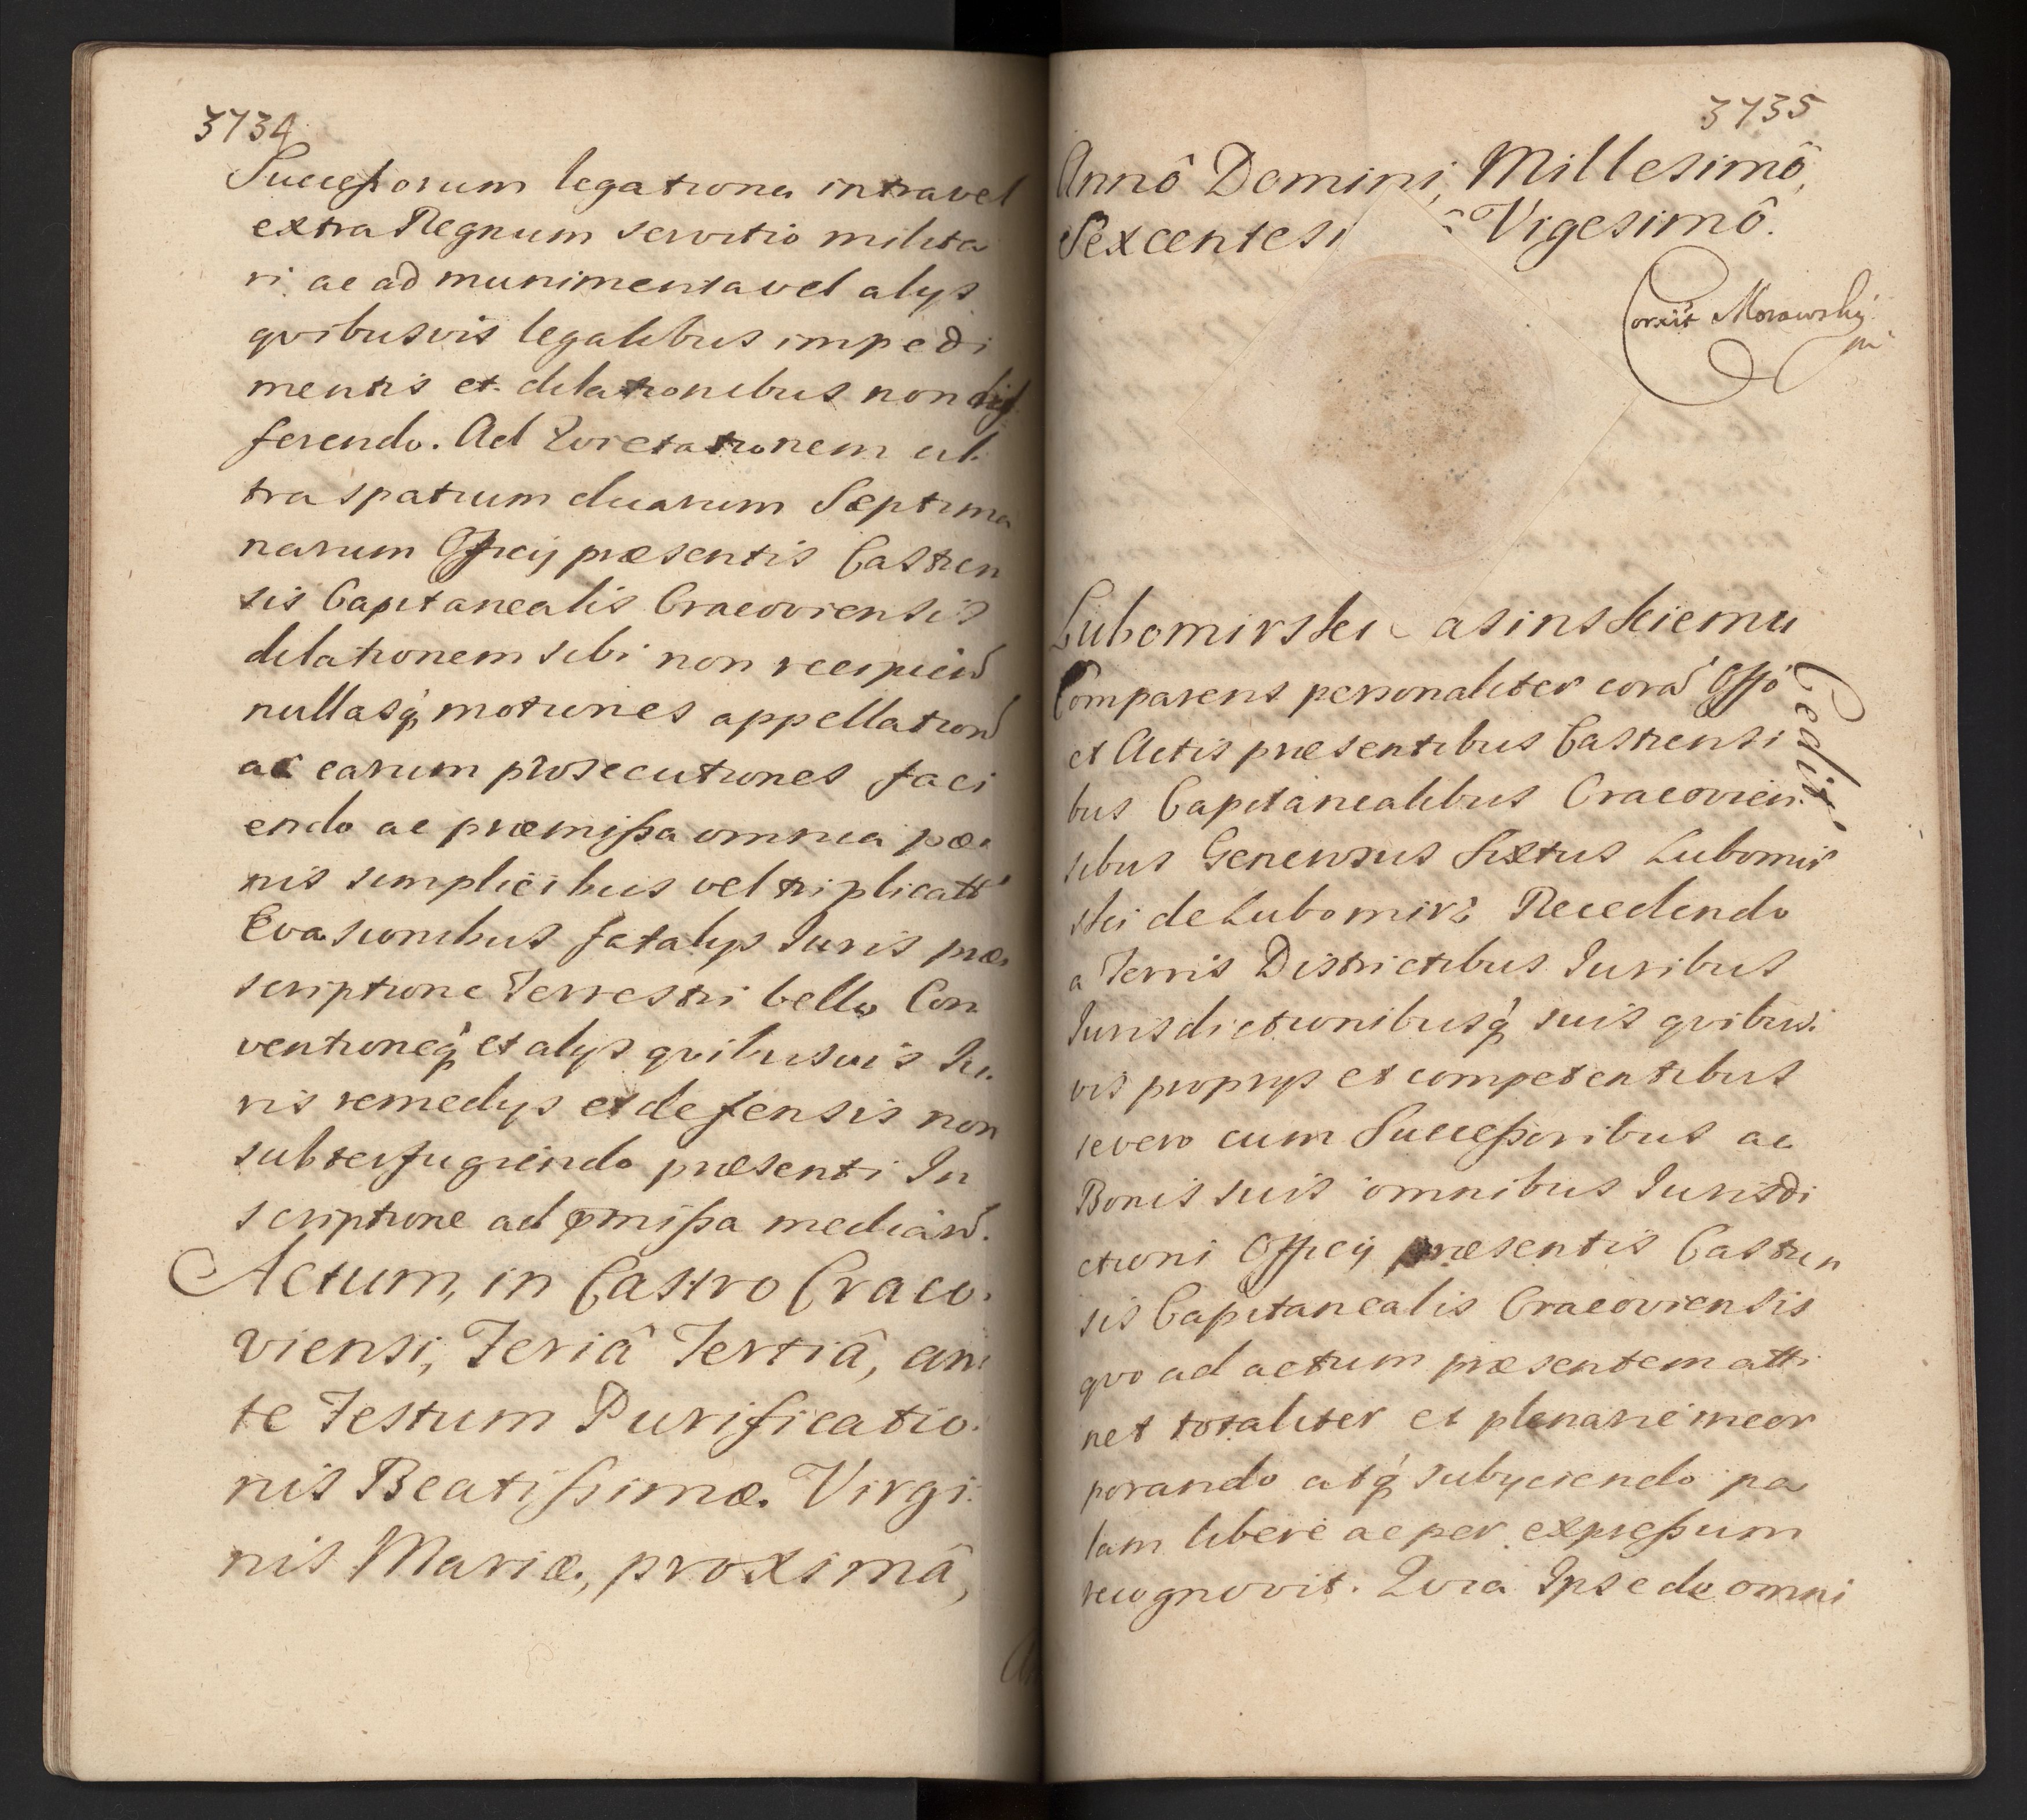 3734
Successorum legationa intravel
extra Regnum servitio milita
ri ac ad munimenta vel alys
qvibusvis legalibus impedi
mentis et dilationibus non dif
ferendo. Ad Qvietationem ul
tra spatium duarum Septima
narum Officij præsentis Castren
sis Capitanealis Cracoviensis
dilationem sibi non recipien̄
nullasq́ motiones appellation̄
ac earum prosecutiones faci
endo ac præmissa omnia pœ
nis simplicibus vel triplicatt
Evasionibus fatalys Iuris præ
scriptione Terrestri bello Con
ventioneq́ et alys qvibusvis Iu
ris remedys et defensis non
subterfugiendo præsenti In
scriptione ad pmissa median̄.
Actum, in Castro Craco.
viensi, Feriâ Tertiâ, an
te Festum Purificatio.
nis Beatissimæ. Virgi.
nis Mariæ, proximâ,
3735
Annô Domini, Millesimô,
Sexcentesi Vigesimô.
Corxit Morawsky
mp
Lubomirski asinskiemu
Cedit
Comparens personaliter corā Offō
et Actis præsentibus Castrensi
bus Capitanealibus Cracovien
sibus Generosus Sixtus Lubomir
ski de Lubomirz Recedendo
a Terris Districtibus Iuribus
Iurisdictionibusq́ suis qvibus
vis proprys et competentibus
se vero cum Successoribus ac
Bonis suis omnibus Iurisdi
ctioni Officij præsentis Castren
sis Capitanealis Cracoviensis
qvo ad actum præsentem atti
net totaliter et plenarie incor
porando atq́ subyciendo pa
lam libere ac per expressum
recognovit. Qvia Ipse de omni